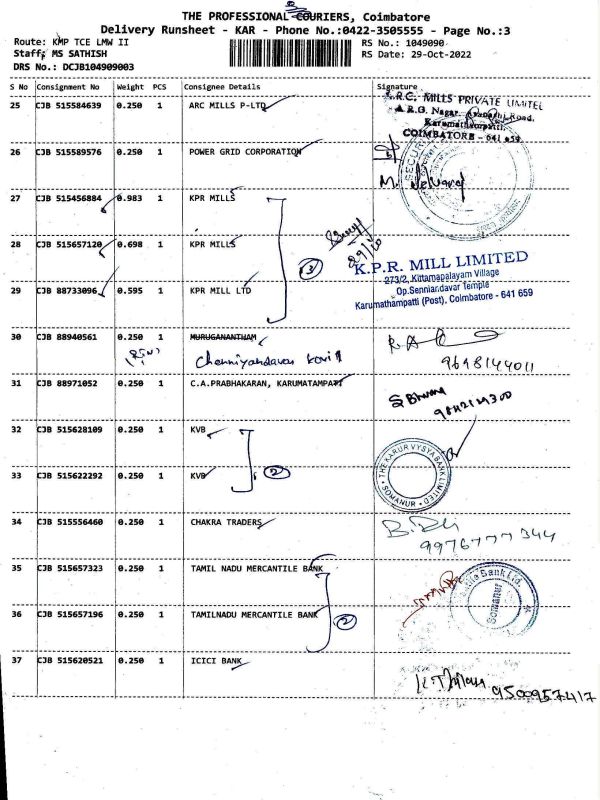 THE PROFESSIONAL COURIERS, Coimbatore
Delivery Runsheet - KAR - Phone No.:0422-3505555 - Page No.:3
Route: KMP TCE LMW II RS No.: 1049090
Staff: MS SATHISH RS Date: 29-Oct-2022
DRS No.: DCJB104909003
S No Consignment No Weight PCS Consignee Details Signature
25 CJB 515584639 0.250 1 ARC MILLS P-LTD
A.R.C. MILLS PRIVATE LIMITED
A.R.G. Nagar, Avanashi Road,
Karumathampatti,
COIMBATORE - 641 659
26 CJB 515589576 0.250 1 POWER GRID CORPORATION
SECURITY
27 CJB 515456884 0.983 1 KPR MILLS
28 CJB 515657120 0.698 1 KPR MILLS
3
29/10
K.P.R. MILL LIMITED
273/2, Kittampalayam Village
Op.Senniandavar Temple
Karumathampatti (Post), Coimbatore - 641 659
29 CJB 88733096 0.595 1 KPR MILL LTD
30 CJB 88940561 0.250 1 MURUGANANTHAM
Chenniyandavar Kovil
9698144011
31 CJB 88971052 0.250 1 C.A.PRABHAKARAN, KARUMATAMPATI
32 CJB 515628109 0.250 1 KVB
2
THE KARUR VYSYA BANK LIMITED
SOMANUR
33 CJB 515622292 0.250 1 KVB
34 CJB 515556460 0.250 1 CHAKRA TRADERS
9976777344
35 CJB 515657323 0.250 1 TAMIL NADU MERCANTILE BANK
Bank Ltd.
Somanur
36 CJB 515657196 0.250 1 TAMILNADU MERCANTILE BANK
2
37 CJB 515620521 0.250 1 ICICI BANK
9500957417